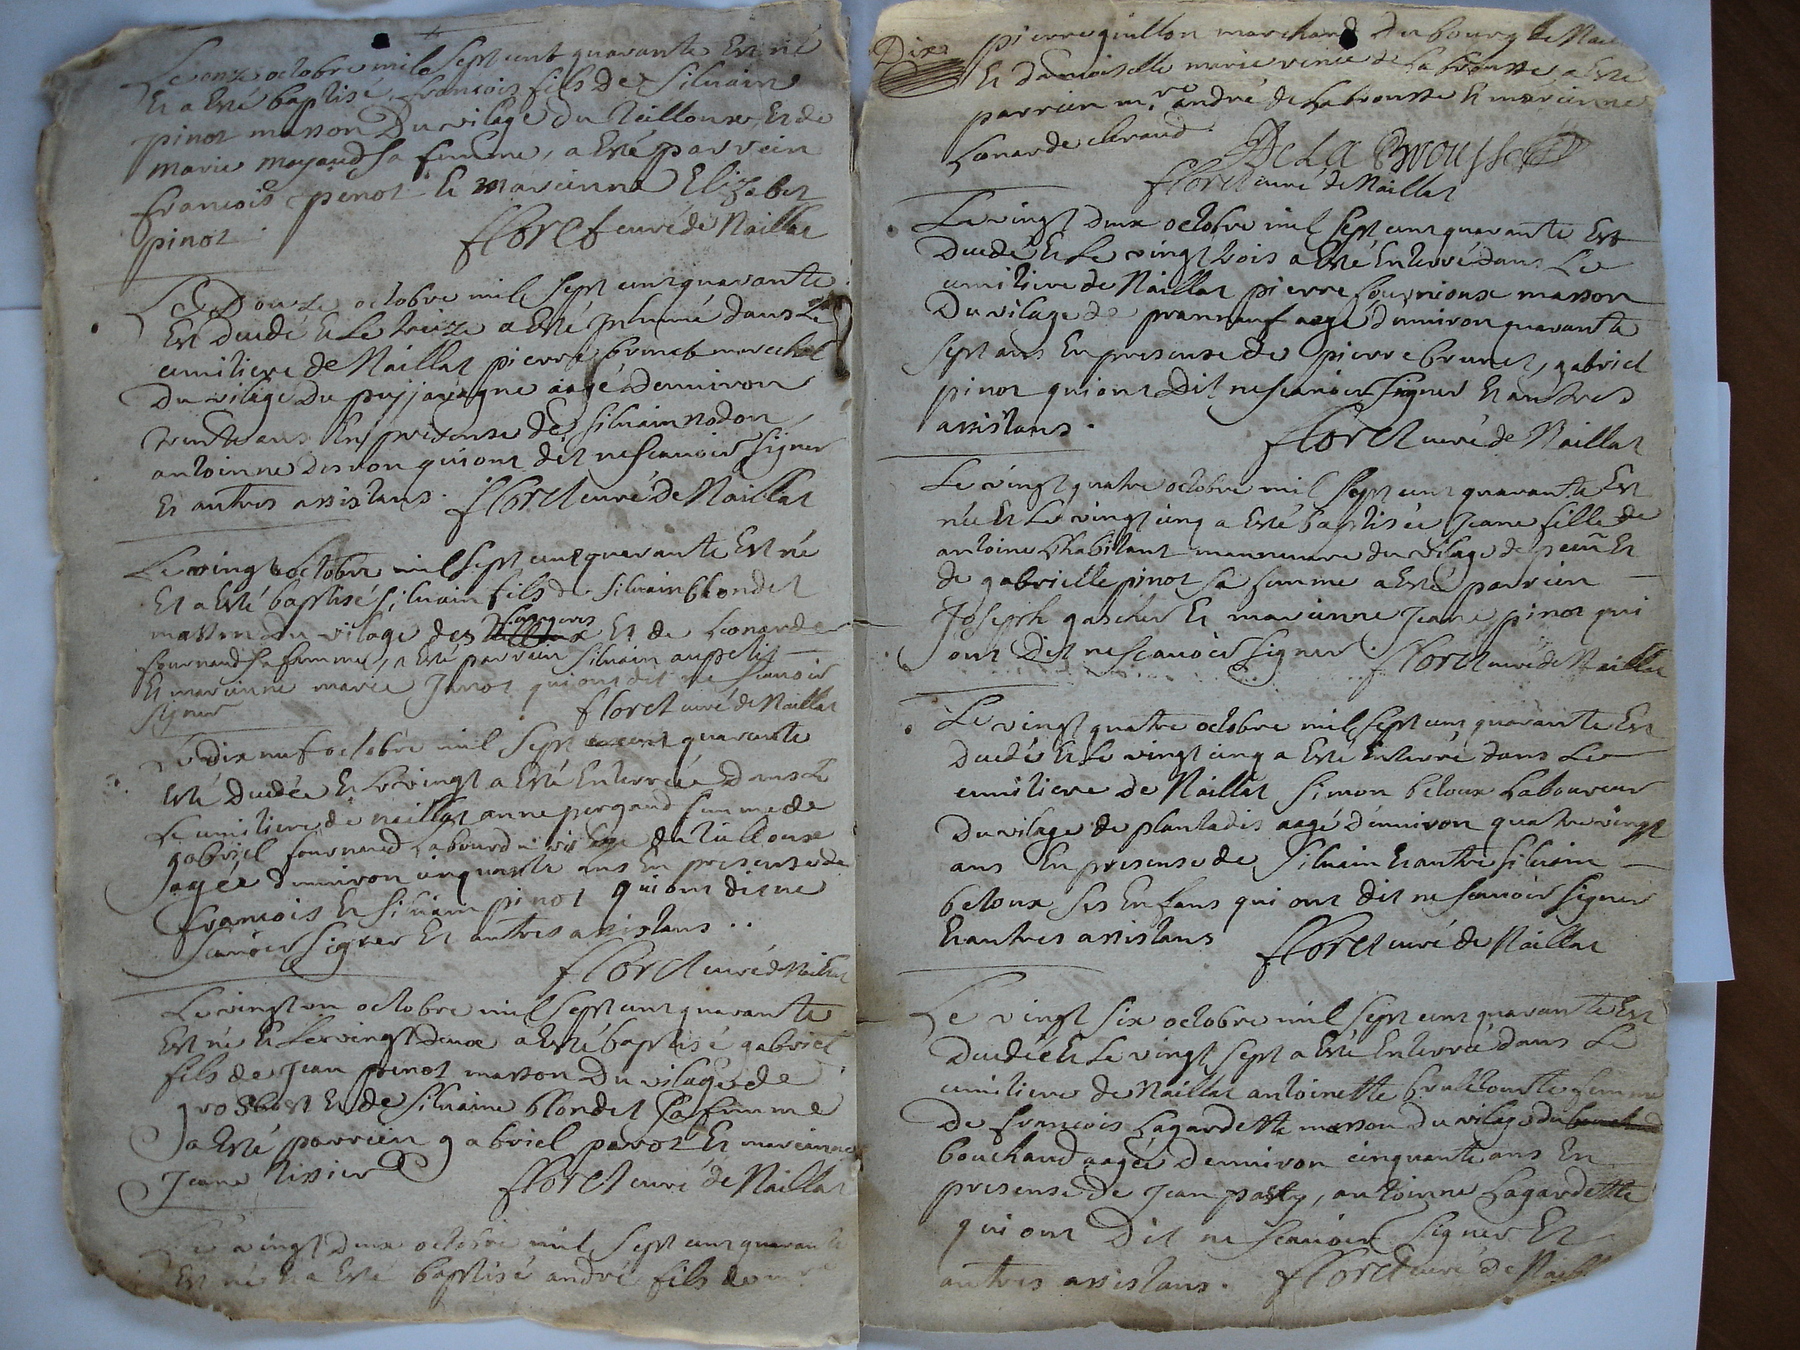 Le onze octobre mile sept cent quarante Est né
Et a Esté baptisé francois fils de Siluain
pinot masson Du vilage du Tailloux, Et de
marie mayaud sa femme, a Esté parrein
francois penot Et mareinne Elizabet
pinot
floret curé de Naillat
Le Douze octobre mil sept cent quarante
Est decedé Et Le treize a Esté inhumé dans Le
cemitiere de Naillat pierre brunet marechal
Du vilage Du puyjavagne aagé Denuiron
trente ans En presense de Siluain nadon
antoinne qui ont dit ne scauoir signer
Et autres assistans. floret curé de Naillat
Le vingt octobre mil sept cent quarante Est né
Et a Esté baptisé Siluain fils de Siluain blondet
masson du vilage des Et de Leonarde
fournaud sa femme, a Esté parrein Siluain aupetit
Et mareinne marie Janot qui ont dit ne scauoir
signer
floret curé de Naillat
Le dix neuf octobre mil sept cent quarante
Esté decedée Et Le vingt a Esté Enterrée Dans Le
Le cemitiere de naillat anne pergaud femme de
gabriel fournaud Labourd vilage du tailloux
agée denuiron cinquante ans En presense de
francois Et Siluain pinot qui ont dit ne
scauoir signer Et autres assistans . .
floret curé de Naillat
Le vingt un octobre mil sept cent quarante
Est né Et Le vingt deux a Esté baptisé gabriel
fils de Jean pinot masson Du vilage de
grosbost Et de Siluaine blondet sa femme
a Esté parrein gabriel perot Et mareinne
Jeane tixier
floret curé de Naillat
Le vingt deux octobre mil sept cent quarante
Est né Et a Esté baptisé andré fils de m.re
Dix
pierre guillon marchand du bourg de Naillat
Et damoiselle marie venie de Labrousse a Esté
parrien m.re andré de Labrousse Et mareinne
Lonarde
De La Brousse
floret curé de Naillat
Le vingt deux octobre mil sept cent quarante Est
Decedé Et Le vingt trois a Esté Enterré dans Le
cemitiere de Naillat pierre fournioux masson
Du vilage de pranneuf aagé denuiron quarante
sept ans En presense de pierre brunet, gabriel
pinot qui ont Dit ne scauoir signer Et autres
assistans.
floret curé de Naillat
Le vingt quatre octobre mil sept cent quarante Est
née Et Le vingt cinq a Esté baptisée Jeane fille de
antoine Lhabitant manneuure du vilage de Et
de gabrielle pinot sa femme a Esté parrien
Joseph gascher Et mareinne Jeane pinot qui
ont Dit ne scauoir signer. floret curé de Naillat
Le vingt quatre octobre mil sept cent quarante Est
Decedés Et Le vingt cinq a Esté Enterré dans Le
cemitiere de Naillat Simon beloux Laboureur
Du vilage de plantadis aagé denuiron quatre vingt
ans En presense de Siluain Et autre Siluain
beloux ses Enfans qui ont dit ne scauoir signer
Et autres assistans floret curé de Naillat
Le vingt six octobre mil sept cent quarante Est
Decedée Et Le vingt sept a Esté Enterrée dans Le
cemitiere de Naillat antoinette femme
De francois Lagardette masson Du vilage du
bouchaud aagée denuiron cinquante ans En
presense de Jean pasty, antoinne Lagardette
qui ont Dit ne scauoir signer Et
autres assistans. floret curé de Naillat